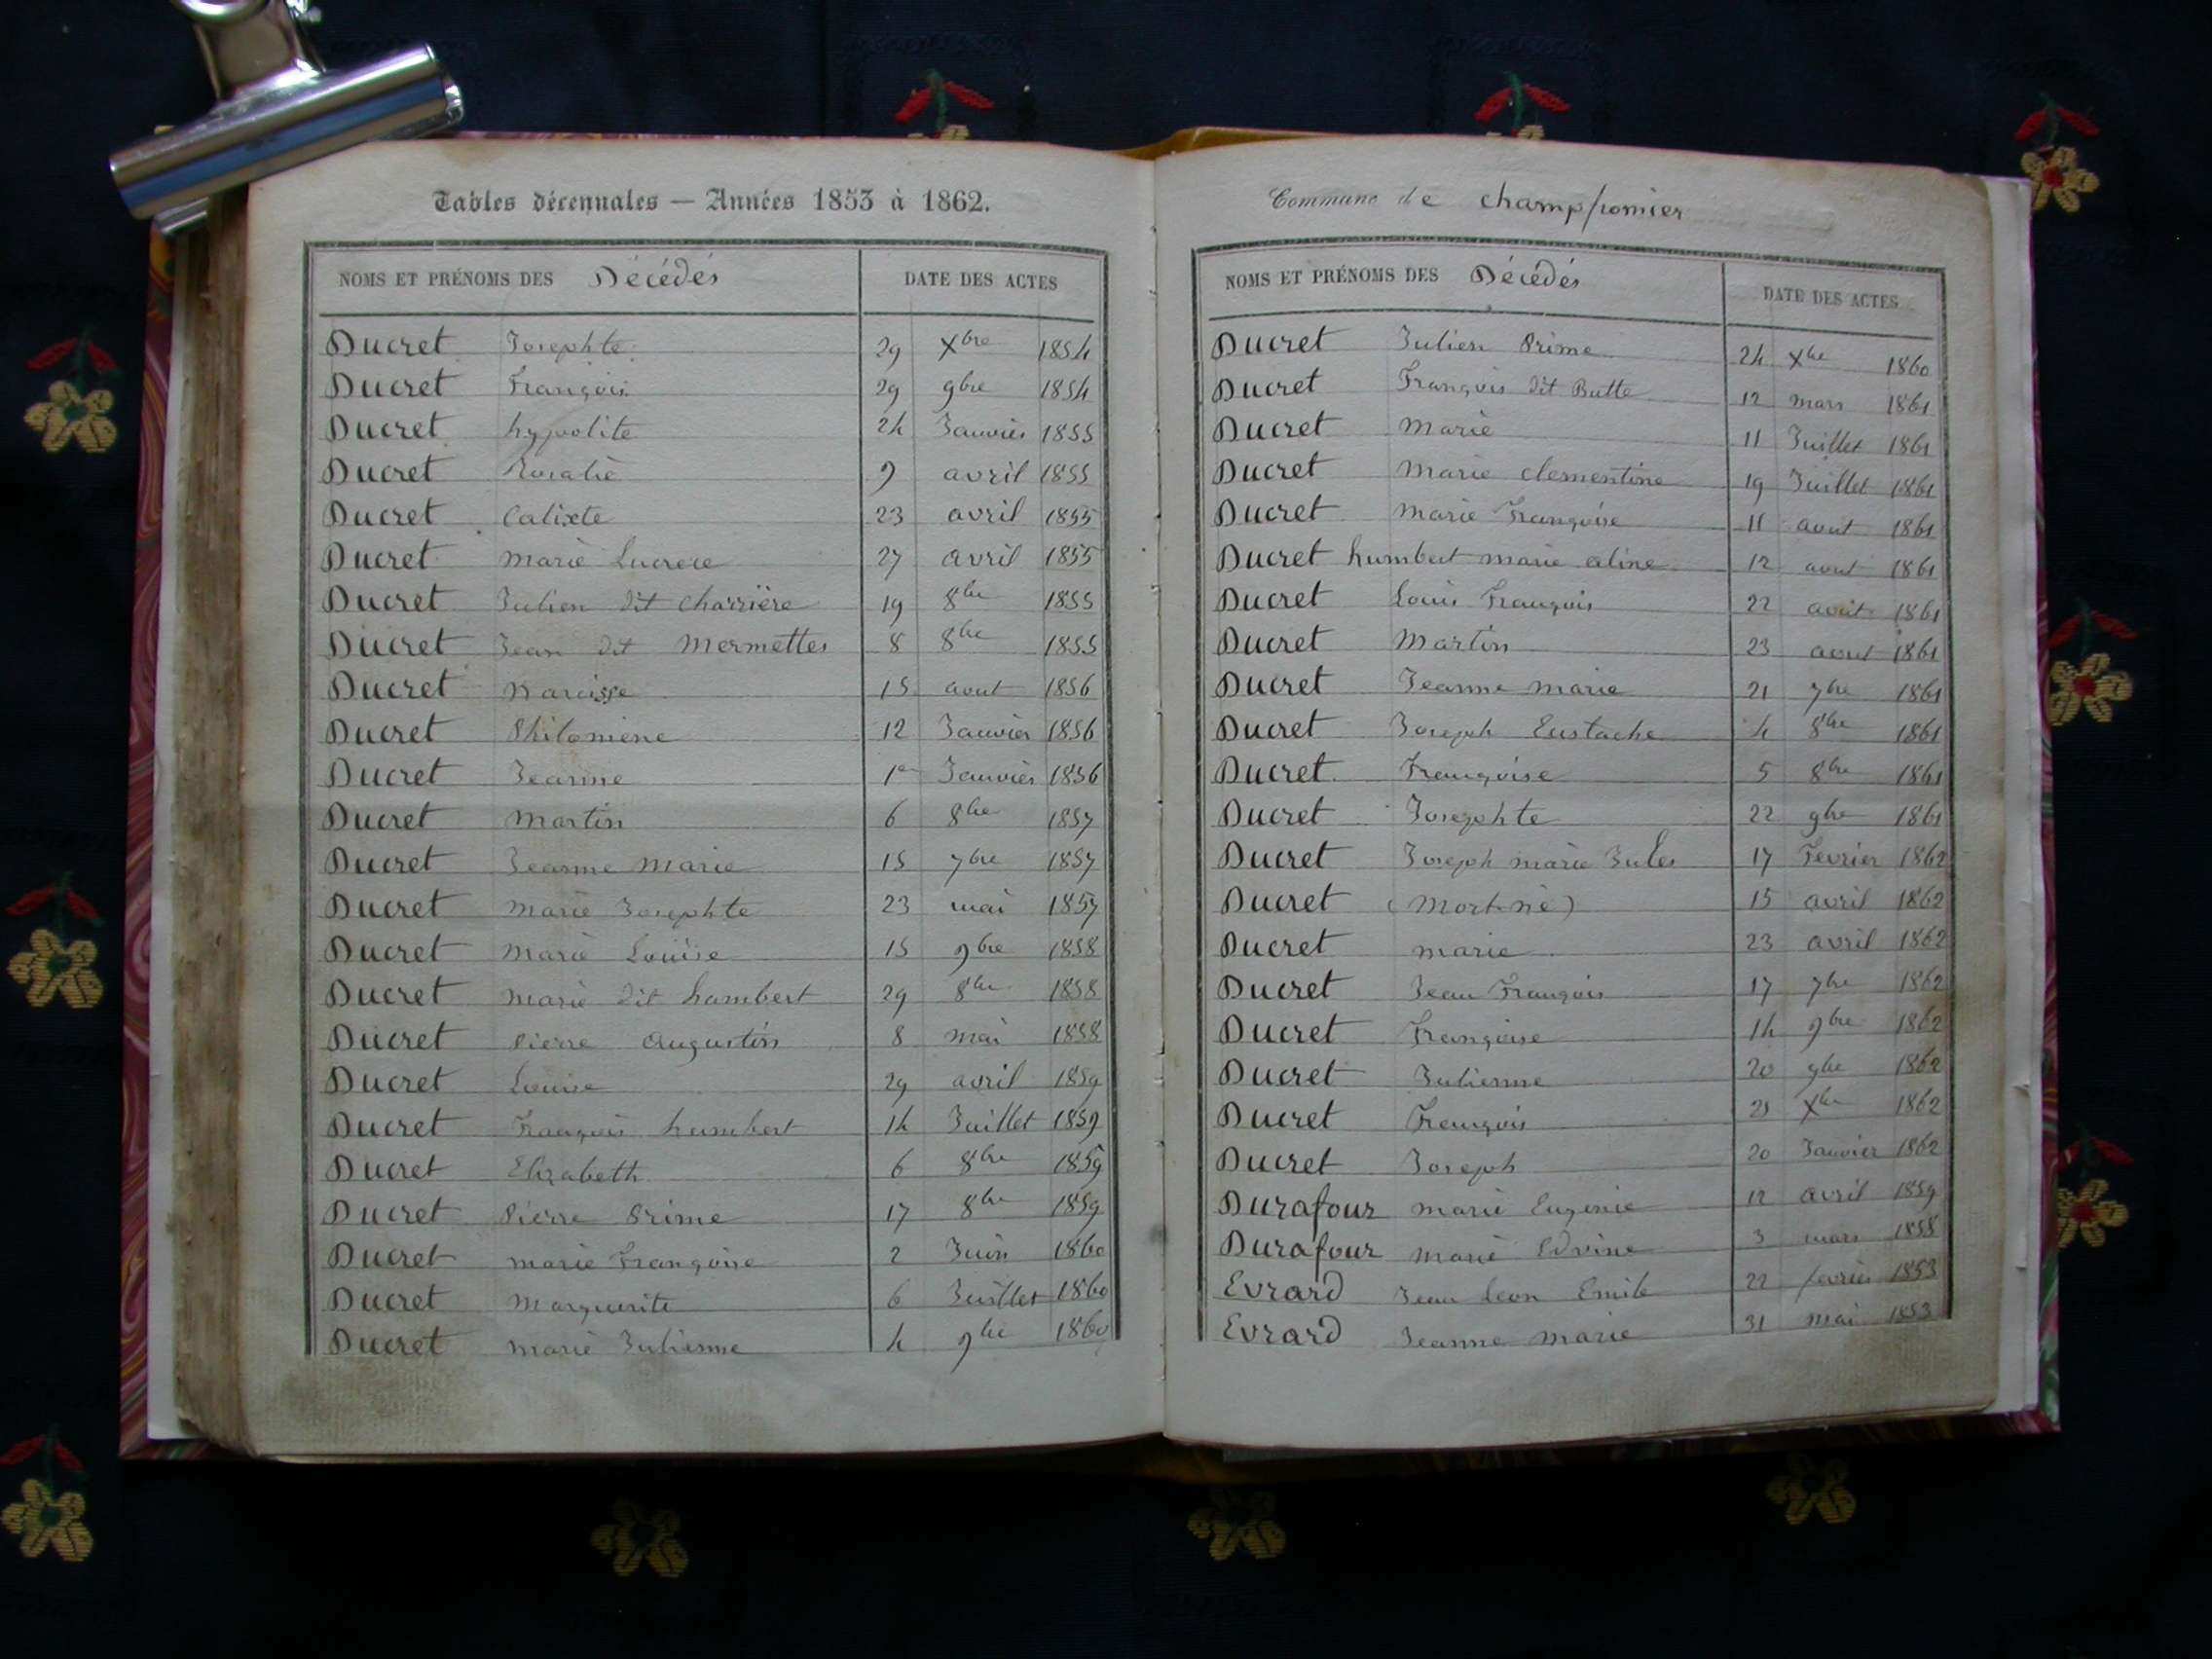 Tables décennales — Années 1853 à 1862.
NOMS ET PRÉNOMS DES Décédés DATE DES ACTES
Ducret Josephte 29 Xbre 1854
Ducret François 29 9bre 1854
Ducret hypolite 24 Janvier 1855
Ducret Rosalie 9 avril 1855
Ducret Calixte 23 avril 1855
Ducret marie Lucrece 27 avril 1855
Ducret Julien dit charrière 19 8bre 1855
Ducret Jean dit Mermettes 8 8bre 1855
Ducret Narcisse 15 aout 1856
Ducret Philomene 12 Janvier 1856
Ducret Jeanne 1er Janvier 1856
Ducret Martin 6 8bre 1857
Ducret Jeanne Marie 15 7bre 1857
Ducret Marie Josephte 23 mai 1857
Ducret Marie Louise 15 9bre 1858
Ducret Marie dit hambert 29 8bre 1858
Ducret Pierre Augustin 8 mai 1858
Ducret Louise 29 avril 1859
Ducret François humbert 14 Juillet 1859
Ducret Elizabeth 6 8bre 1859
Ducret Pierre Prime 17 8bre 1859
Ducret marie Françoise 2 Juin 1860
Ducret Marguerite 6 Juillet 1860
Ducret Marie Julienne 4 9bre 1860
Commune de champfromier
NOMS ET PRÉNOMS DES Décédés DATE DES ACTES
Ducret Julien Prime 24 Xbre 1860
Ducret François dit Butte 12 mars 1861
Ducret Marie 11 Juillet 1861
Ducret Marie clementine 19 Juillet 1861
Ducret Marie Françoise 11 aout 1861
Ducret humbert marie aline 12 aout 1861
Ducret Louis François 22 aout 1861
Ducret Martin 23 aout 1861
Ducret Jeanne Marie 21 7bre 1861
Ducret Joseph Eustache 4 8bre 1861
Ducret Françoise 5 8bre 1861
Ducret Josephte 22 9bre 1861
Ducret Joseph marie Jules 17 Fevrier 1862
Ducret (Mort-né) 15 avril 1862
Ducret marie 23 avril 1862
Ducret Jean François 17 7bre 1862
Ducret Françoise 14 9bre 1862
Ducret Julienne 20 9bre 1862
Ducret François 21 Xbre 1862
Ducret Joseph 20 Janvier 1862
Durafour marie Eugenie 12 avril 1859
Durafour marie Edvine 3 mars 1858
Evrard Jean leon Emile 22 fevrier 1853
Evrard Jeanne Marie 31 mai 1853